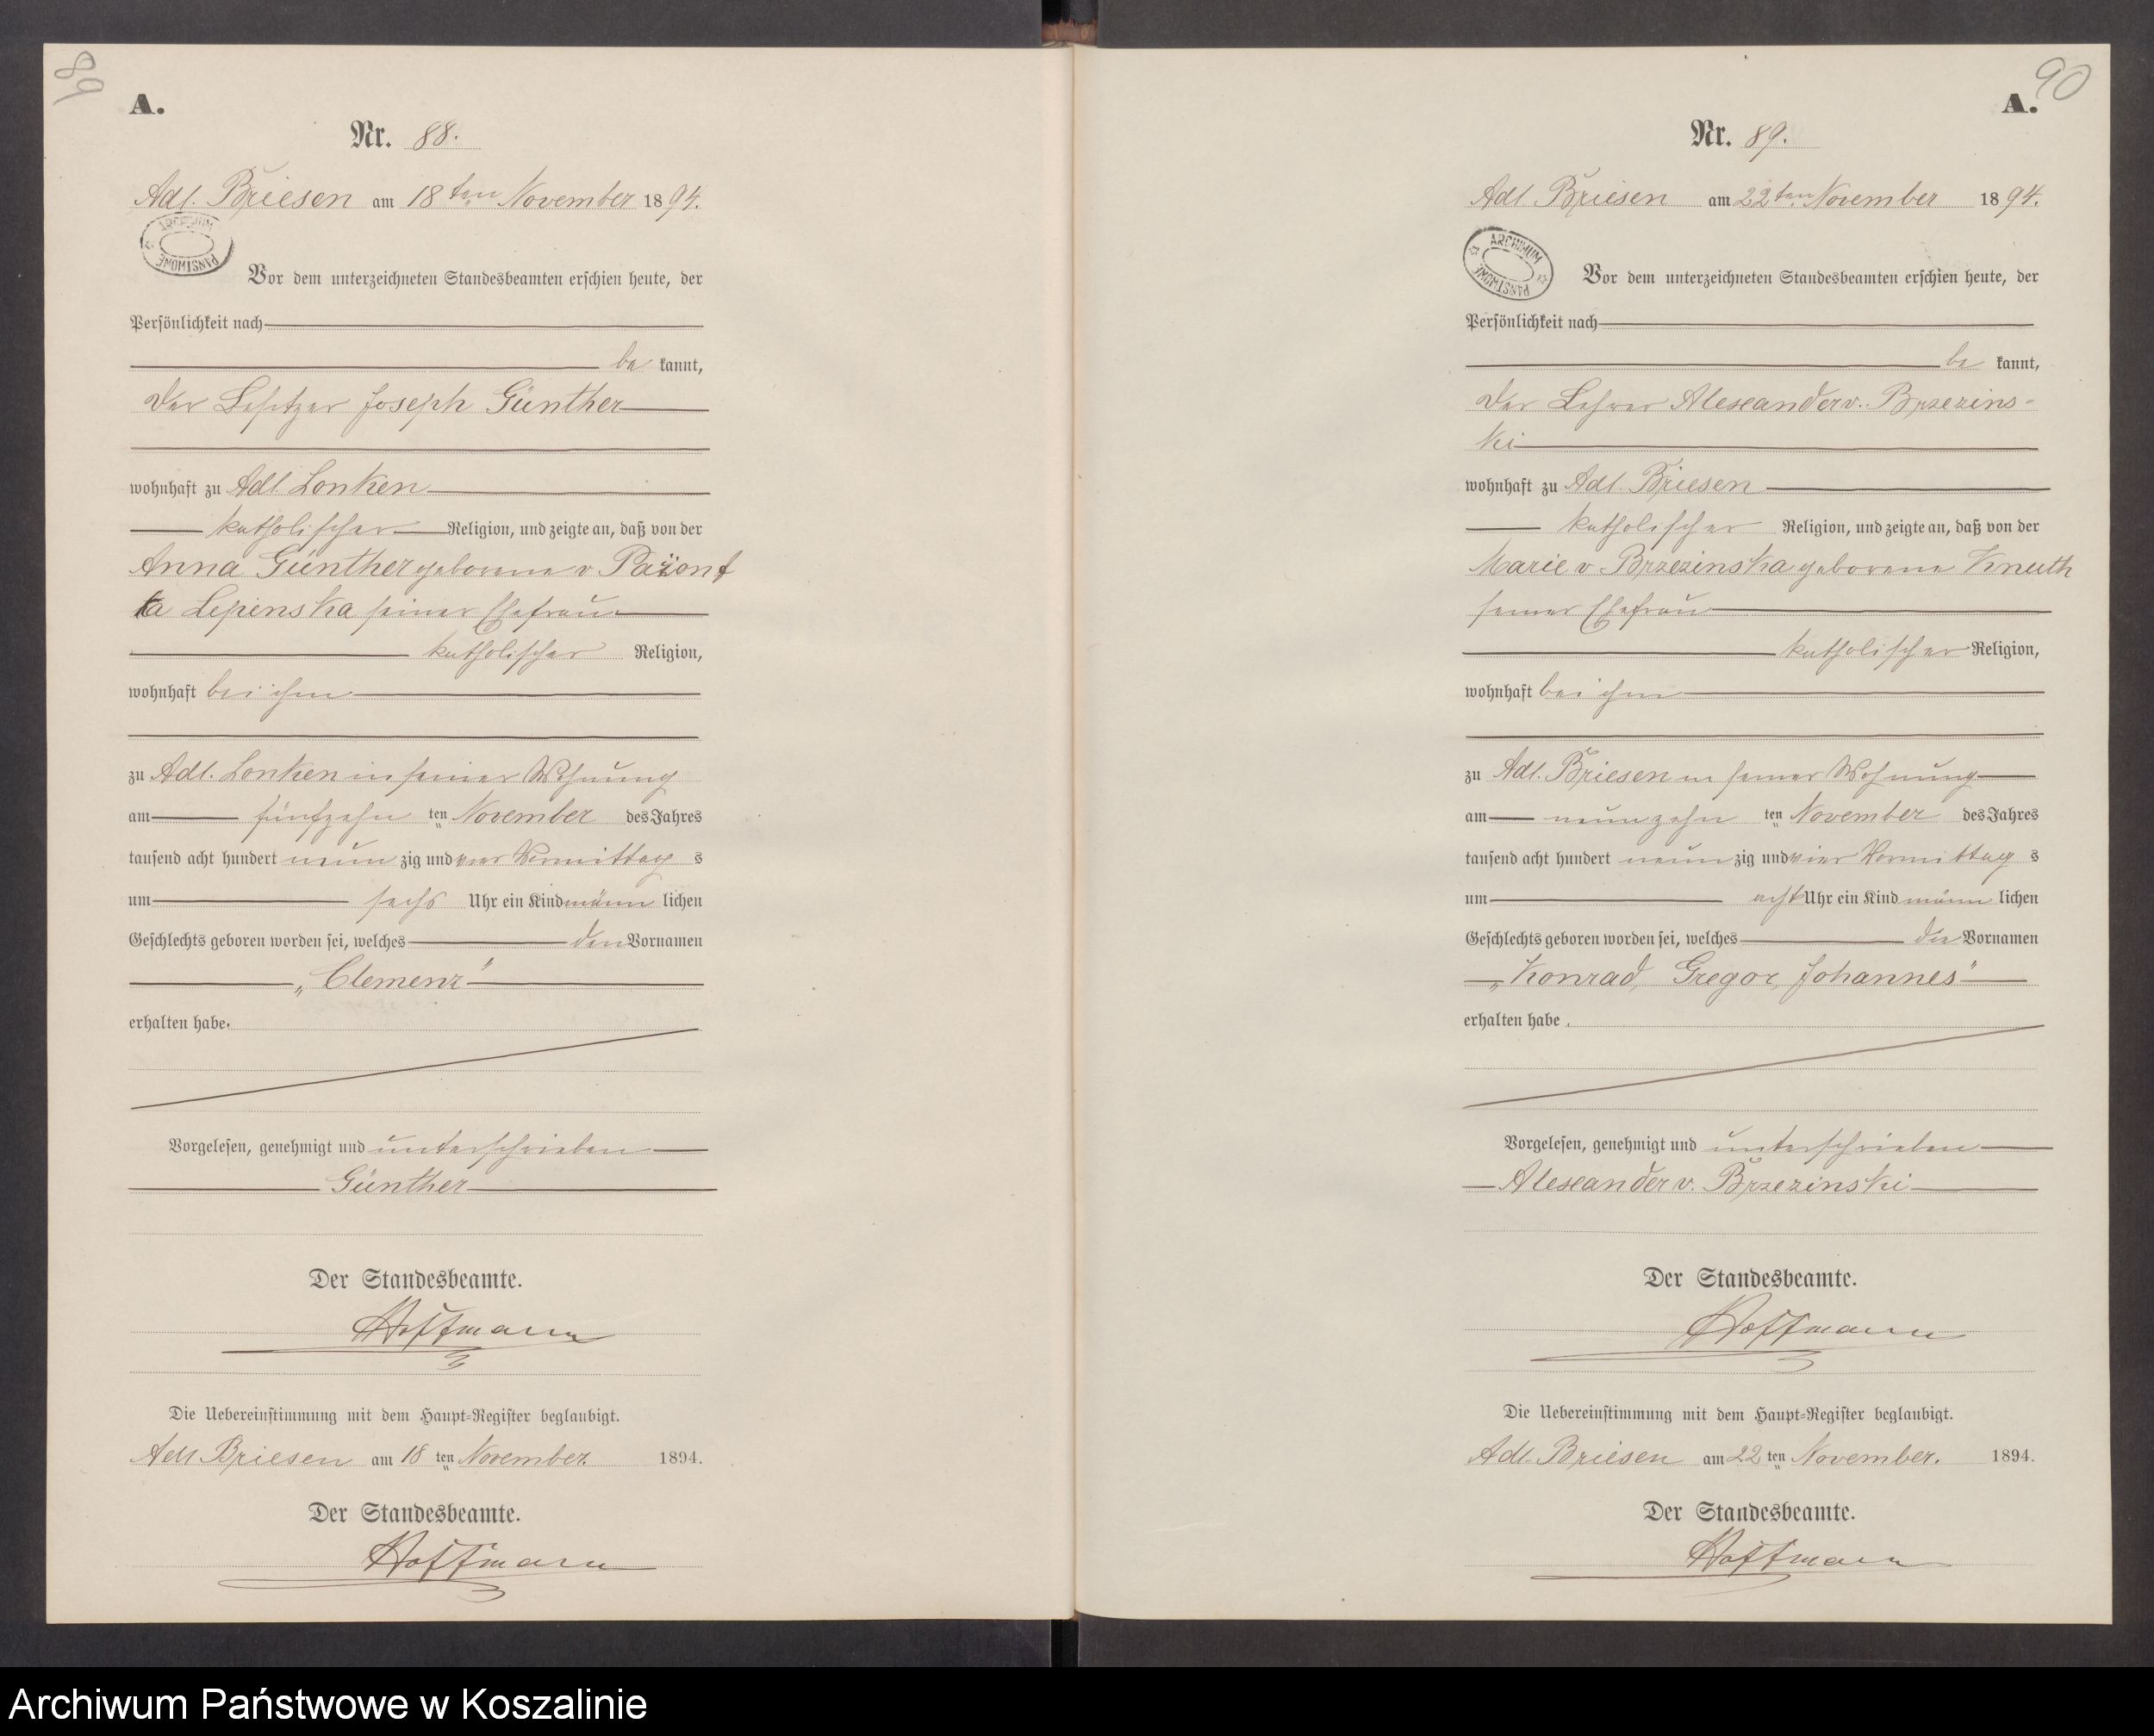 89
A.
Nr. 88.
Adl. Briesen am 18ten November 1894.
ARCHIWUM PAŃSTWOWE
Vor dem unterzeichneten Standesbeamten erschien heute, der
Persönlichkeit nach
be kannt,
der Besitzer Joseph Günther
wohnhaft zu Adl. Lonken
katholischer Religion, und zeigte an, daß von der
Anna Günther geborene v
Lepinska seiner Ehefrau
katholischer Religion,
wohnhaft bei ihm
zu Adl. Lonken in seiner Wohnung
am fünfzehn ten November des Jahres
tausend acht hundert neun zig und vier Vormittag s
um sechs Uhr ein Kind männ lichen
Geschlechts geboren worden sei, welches den Vornamen
„Clemenz"
erhalten habe.
Vorgelesen, genehmigt und unterschrieben
Günther
Der Standesbeamte.
Hoffmann
Die Uebereinstimmung mit dem Haupt-Register beglaubigt.
Adl. Briesen am 18 ten November. 1894.
Der Standesbeamte.
Hoffmann
90
A.
Nr. 89.
Adl. Briesen am 22ten November 1894.
ARCHIWUM PAŃSTWOWE
Vor dem unterzeichneten Standesbeamten erschien heute, der
Persönlichkeit nach
be kannt,
der Lehrer Alexander v. Brzezins-
ki
wohnhaft zu Adl. Briesen
katholischer Religion, und zeigte an, daß von der
Marie v. Brzezinska geborene Knuth
seiner Ehefrau
katholischer Religion,
wohnhaft bei ihm
zu Adl. Briesen in seiner Wohnung
am neunzehn ten November des Jahres
tausend acht hundert neun zig und vier Vormittag s
um acht Uhr ein Kind männ lichen
Geschlechts geboren worden sei, welches die Vornamen
„Konrad, Gregor, Johannes"
erhalten habe.
Vorgelesen, genehmigt und unterschrieben
Alexander v. Brzezinski
Der Standesbeamte.
Hoffmann
Die Uebereinstimmung mit dem Haupt-Register beglaubigt.
Adl. Briesen am 22 ten November. 1894.
Der Standesbeamte.
Hoffmann
Archiwum Państwowe w Koszalinie